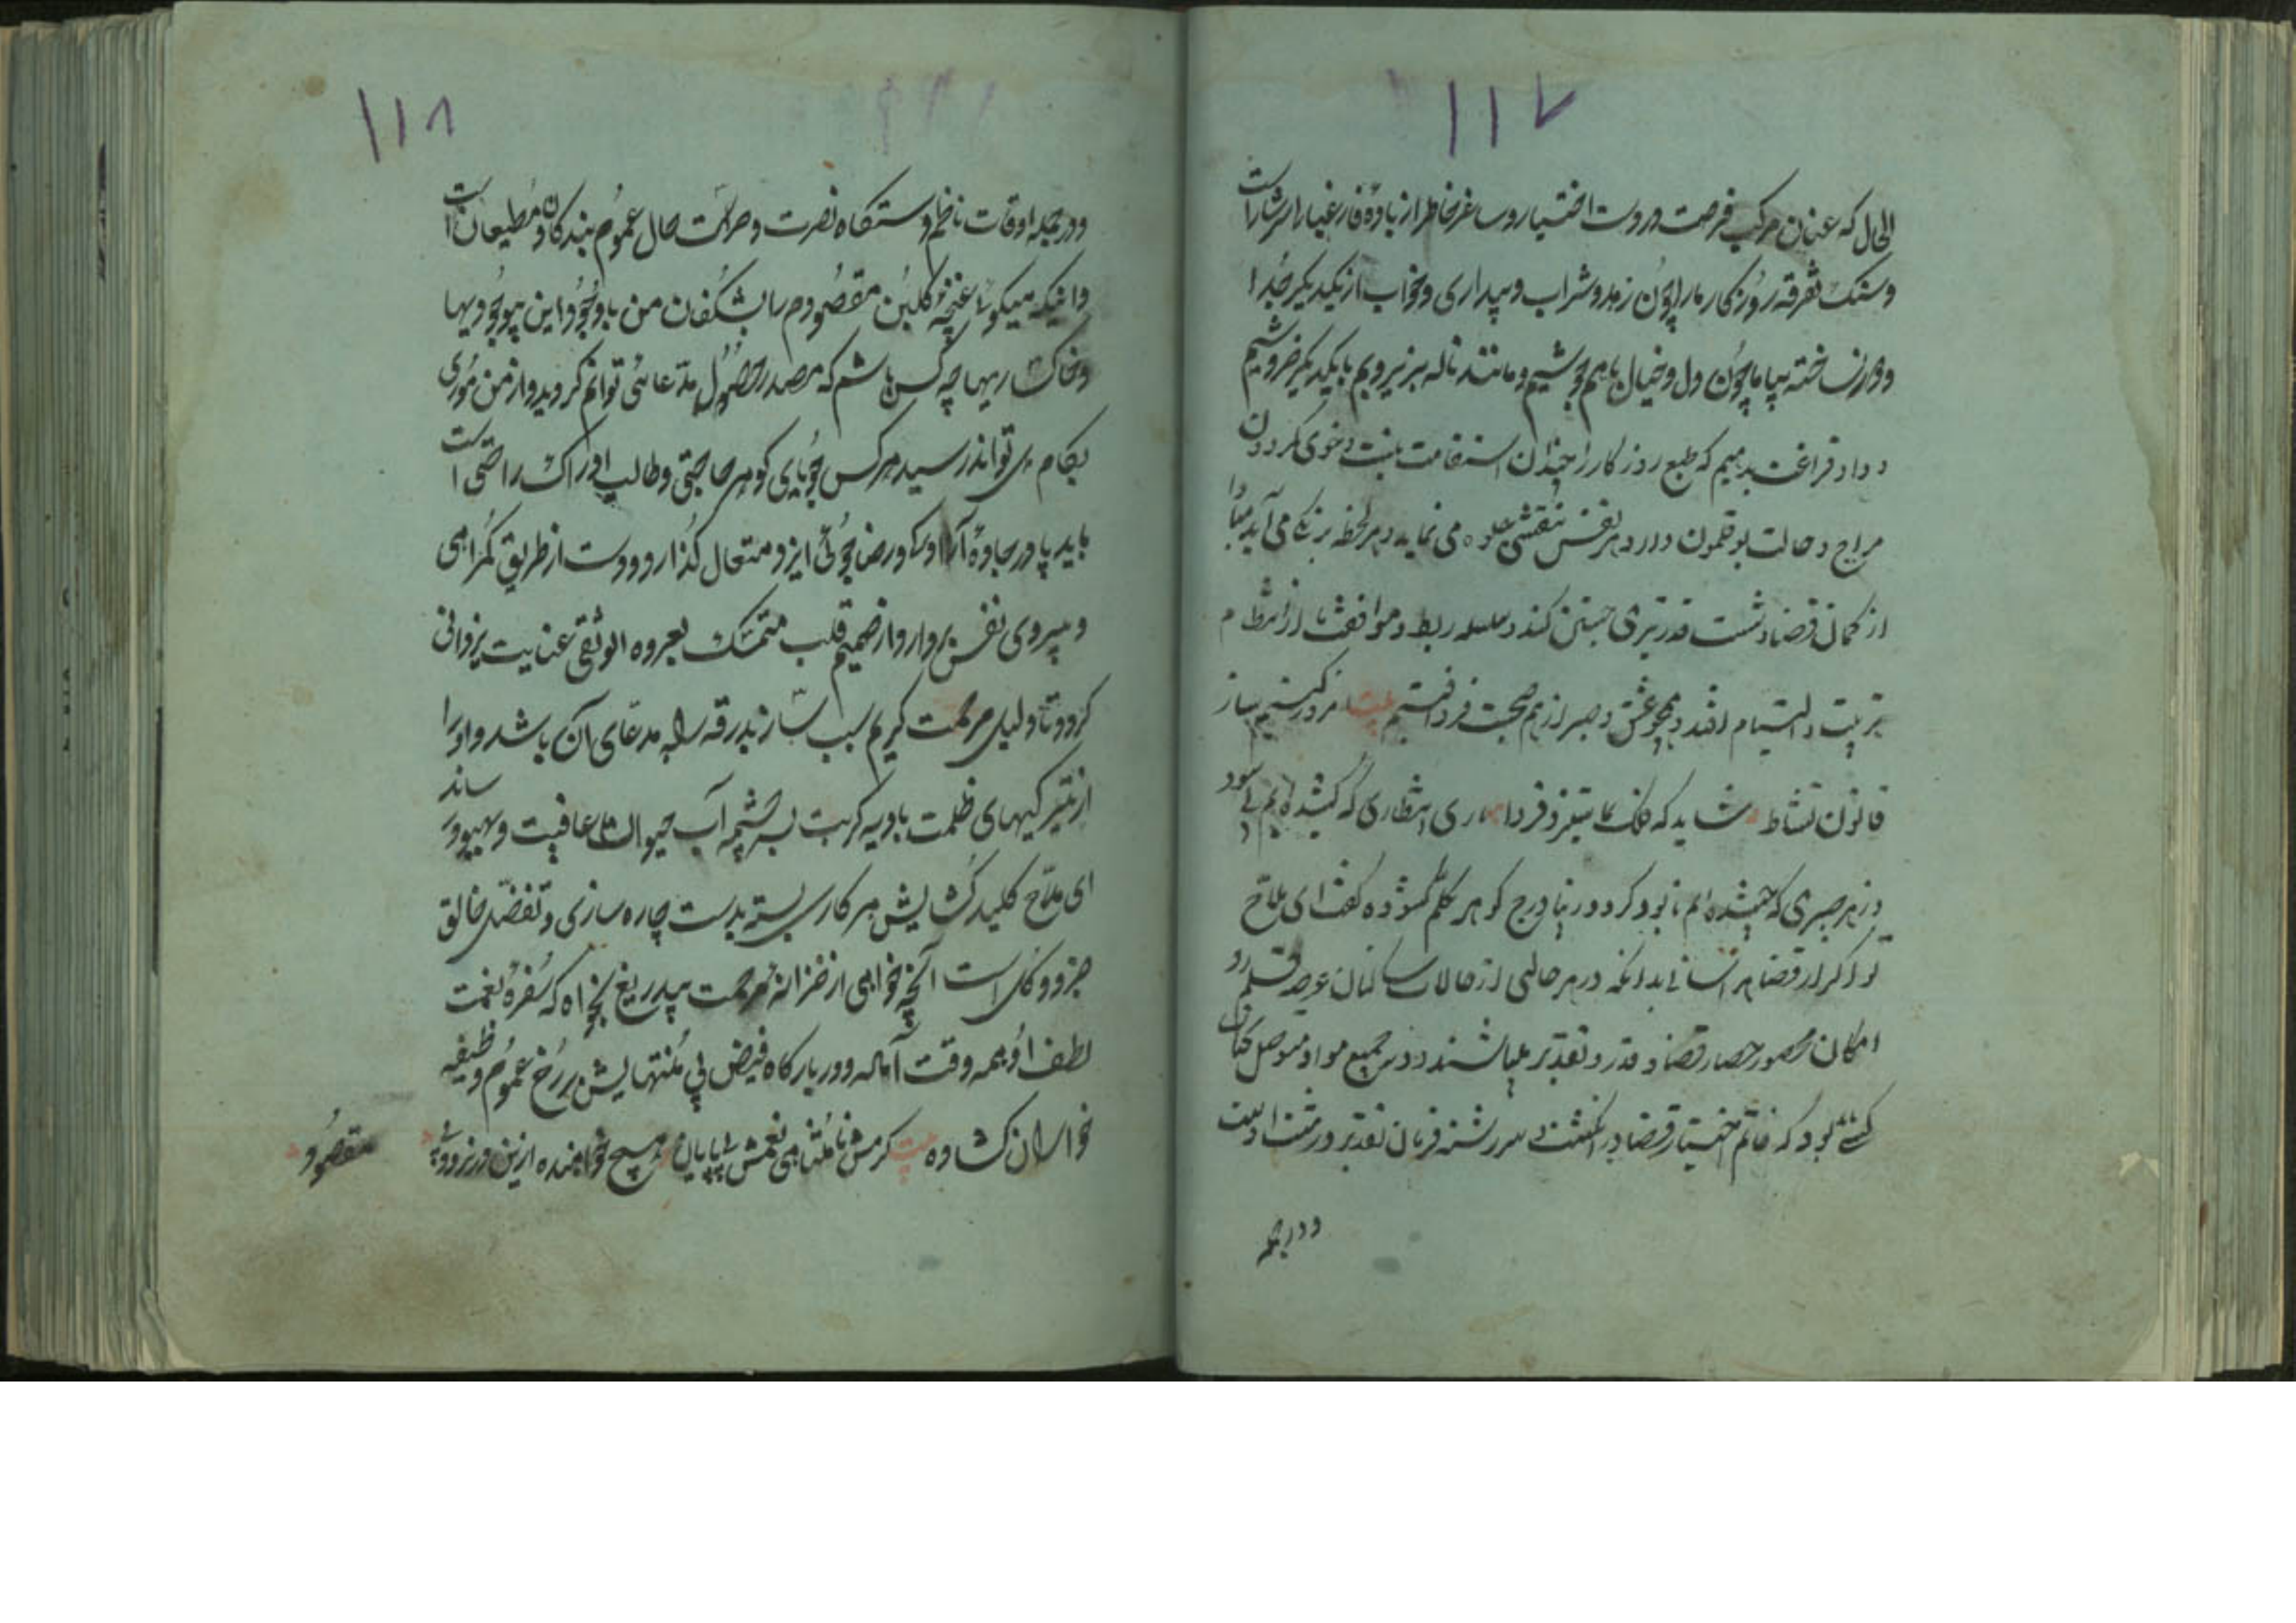 ۱۱۷
الحال که عنان مرکب فرصت در دست اختیار و ساغر خاطر از باده فارغبالی سرشار است
و سنک تفرقه روزکار ما را چون زهد و شراب و بیداری و خواب از یکدیکر جدا
نساخته بیا ما چون دل و خیال باهم جوشیم و مانند ناله بم و زیر و بم با یکدیکر خروشیم
داد فراغت بدهیم که طبع روزکار را چندان استقامت نیست و خوی کردون
مزاج و حالت بوقلمون دارد هر نفس بنقشی جلوه می نماید و هر لحظه برنکی می آید مبادا
از کمان قضا و شست قدر تیری جستن کند و سلسله ربط و موافقت ما از انتظام
تربیت و التیام افتد و همچو عشق و صبر از هم صحبت فرد افتیم بیت امروز کنیم ساز
قانون نشاط شاید که فلک بما ستیزد فردا ری انتظاری که کشیده ایم بی سود
و زهر صبری که چشیده ایم نابود کردد زیبا درج کوهر تکلم کشوده کفت ای ملاح
امکان محصور حصار قضا و قدر و تقدیر میباشند و در جمیع مواد
کسی نبود که خاتم اختیار قضا در انکشت و سررشته فرمان تقدیر در مشت اوست
و در جمله
۱۱۸
و در جمله اوقات ناظم دستکاه نصرت و حراست حال عموم بندکان و مطیعان است
و انیکه میکوئی غنچه کلبن مقصودم را بشکفان من باوجود این بیوجودیها
و خاکساریها چه کس باشم که مصدر حصول مدعائی توانم کردید و از من موری
بکام می تواند رسید هر کس جویای کوهر حاجتی و طالب ادراک راحتی است
باید پا در جاده آرد و رو در رضا جوئی ایزد متعال کذارد و دست از طریق کمراهی
و پیروی نفس بردارد و از صمیم قلب متمسک بعروه الوثقی عنایت یزدانی
کردد تا دلیل مرحمت کریم سبب ساز بدرقه راه مدعای آن باشد و او را
از تیرکیهای ظلمت بادیه کربت بسرچشمه آب حیوان عافیت و بهبود رساند
ای ملاح کلید کشایش هر کار بسته بدست چاره سازی و تفضل خالق
جزو و کل است آنچه خواهی از خزانه مرحمت بیدریغ بخواه که سفره نعمت
لطف او همه وقت آماده و در بارکاه فیض بی منتهایش بر رخ عموم وظیفه
خواران کشاده بیت کرمش نامتناهی نعمش بی پایان هیچ خواهنده ازین در نرود بی
مقصود